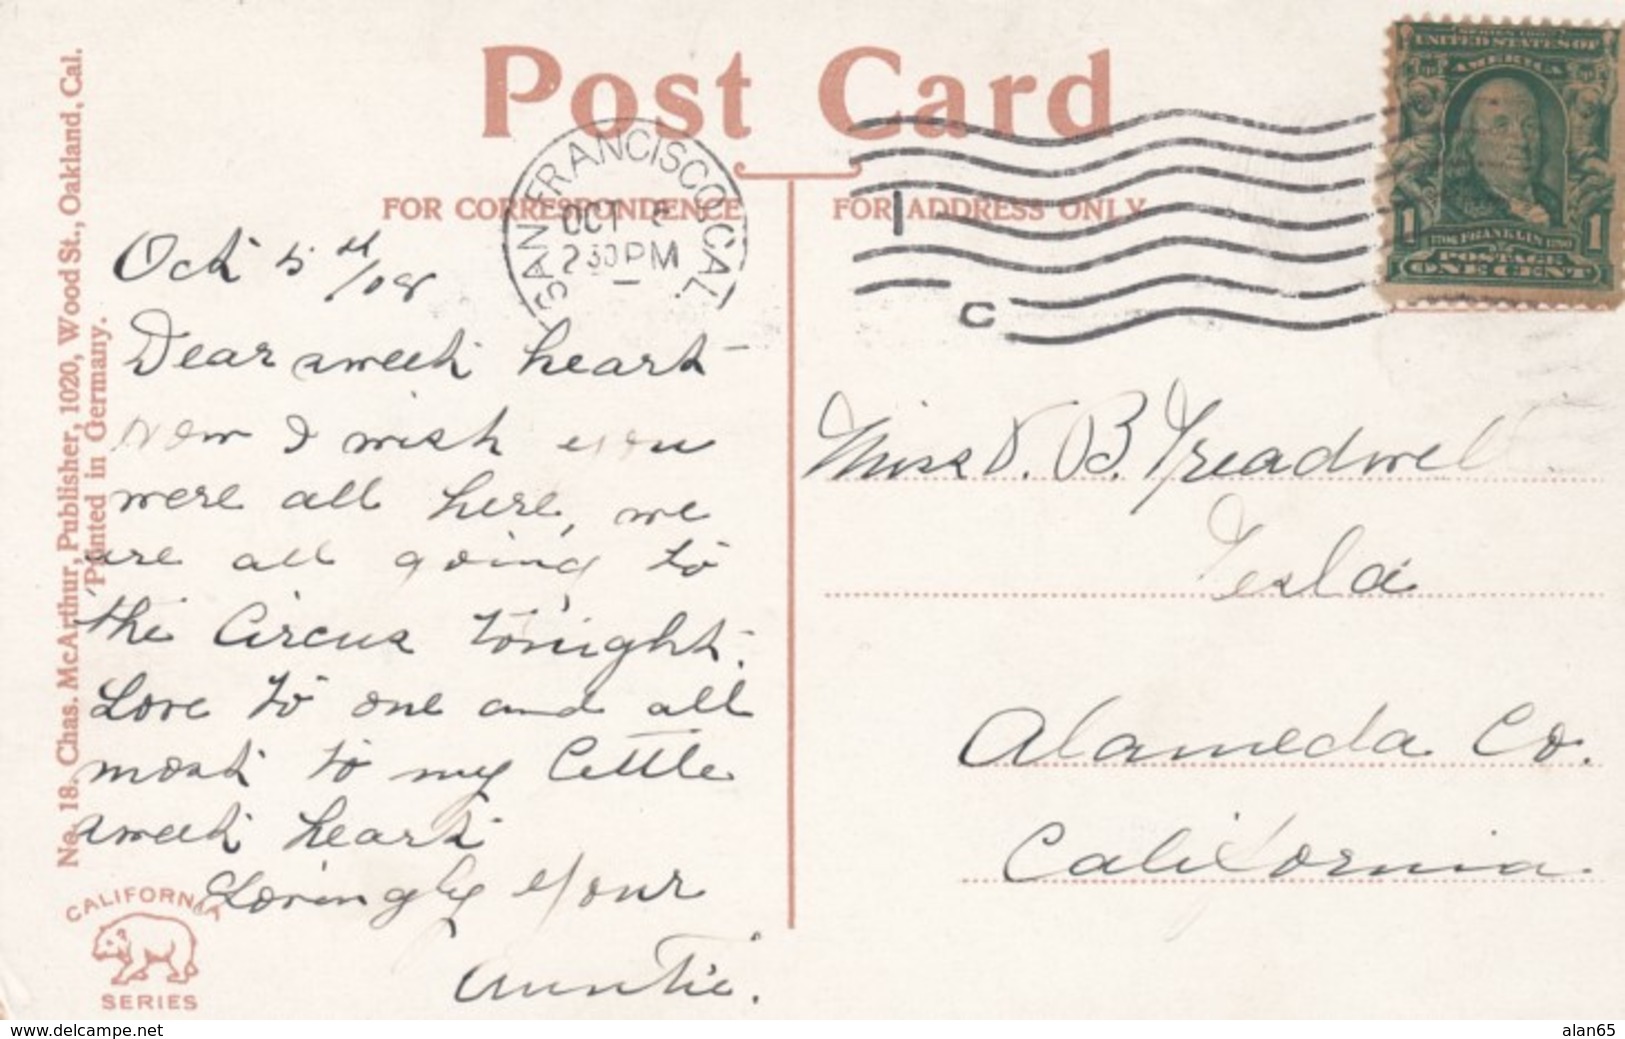 Post Card
FOR CORRESPONDENCE
FOR ADDRESS ONLY
SAN FRANCISCO, CAL.
OCT
230 PM
1
C
SERIES 1902
UNITED STATES OF
AMERICA
1706 FRANKLIN 1790
POSTAGE
ONE CENT
1 1
No. 18. Chas. McArthur, Publisher, 1020, Wood St., Oakland, Cal.
Printed in Germany.
Oct 5th/08
Dear sweet heart—
now I wish you
were all here, we
are all going to
the Circus tonight.
Love to one and all
most to my little
sweet heart
Lovingly your
Auntie.
Miss D. B. Treadwell
Tesla
Alameda Co.
California.
CALIFORNIA
SERIES
www.delcampe.net
alan65